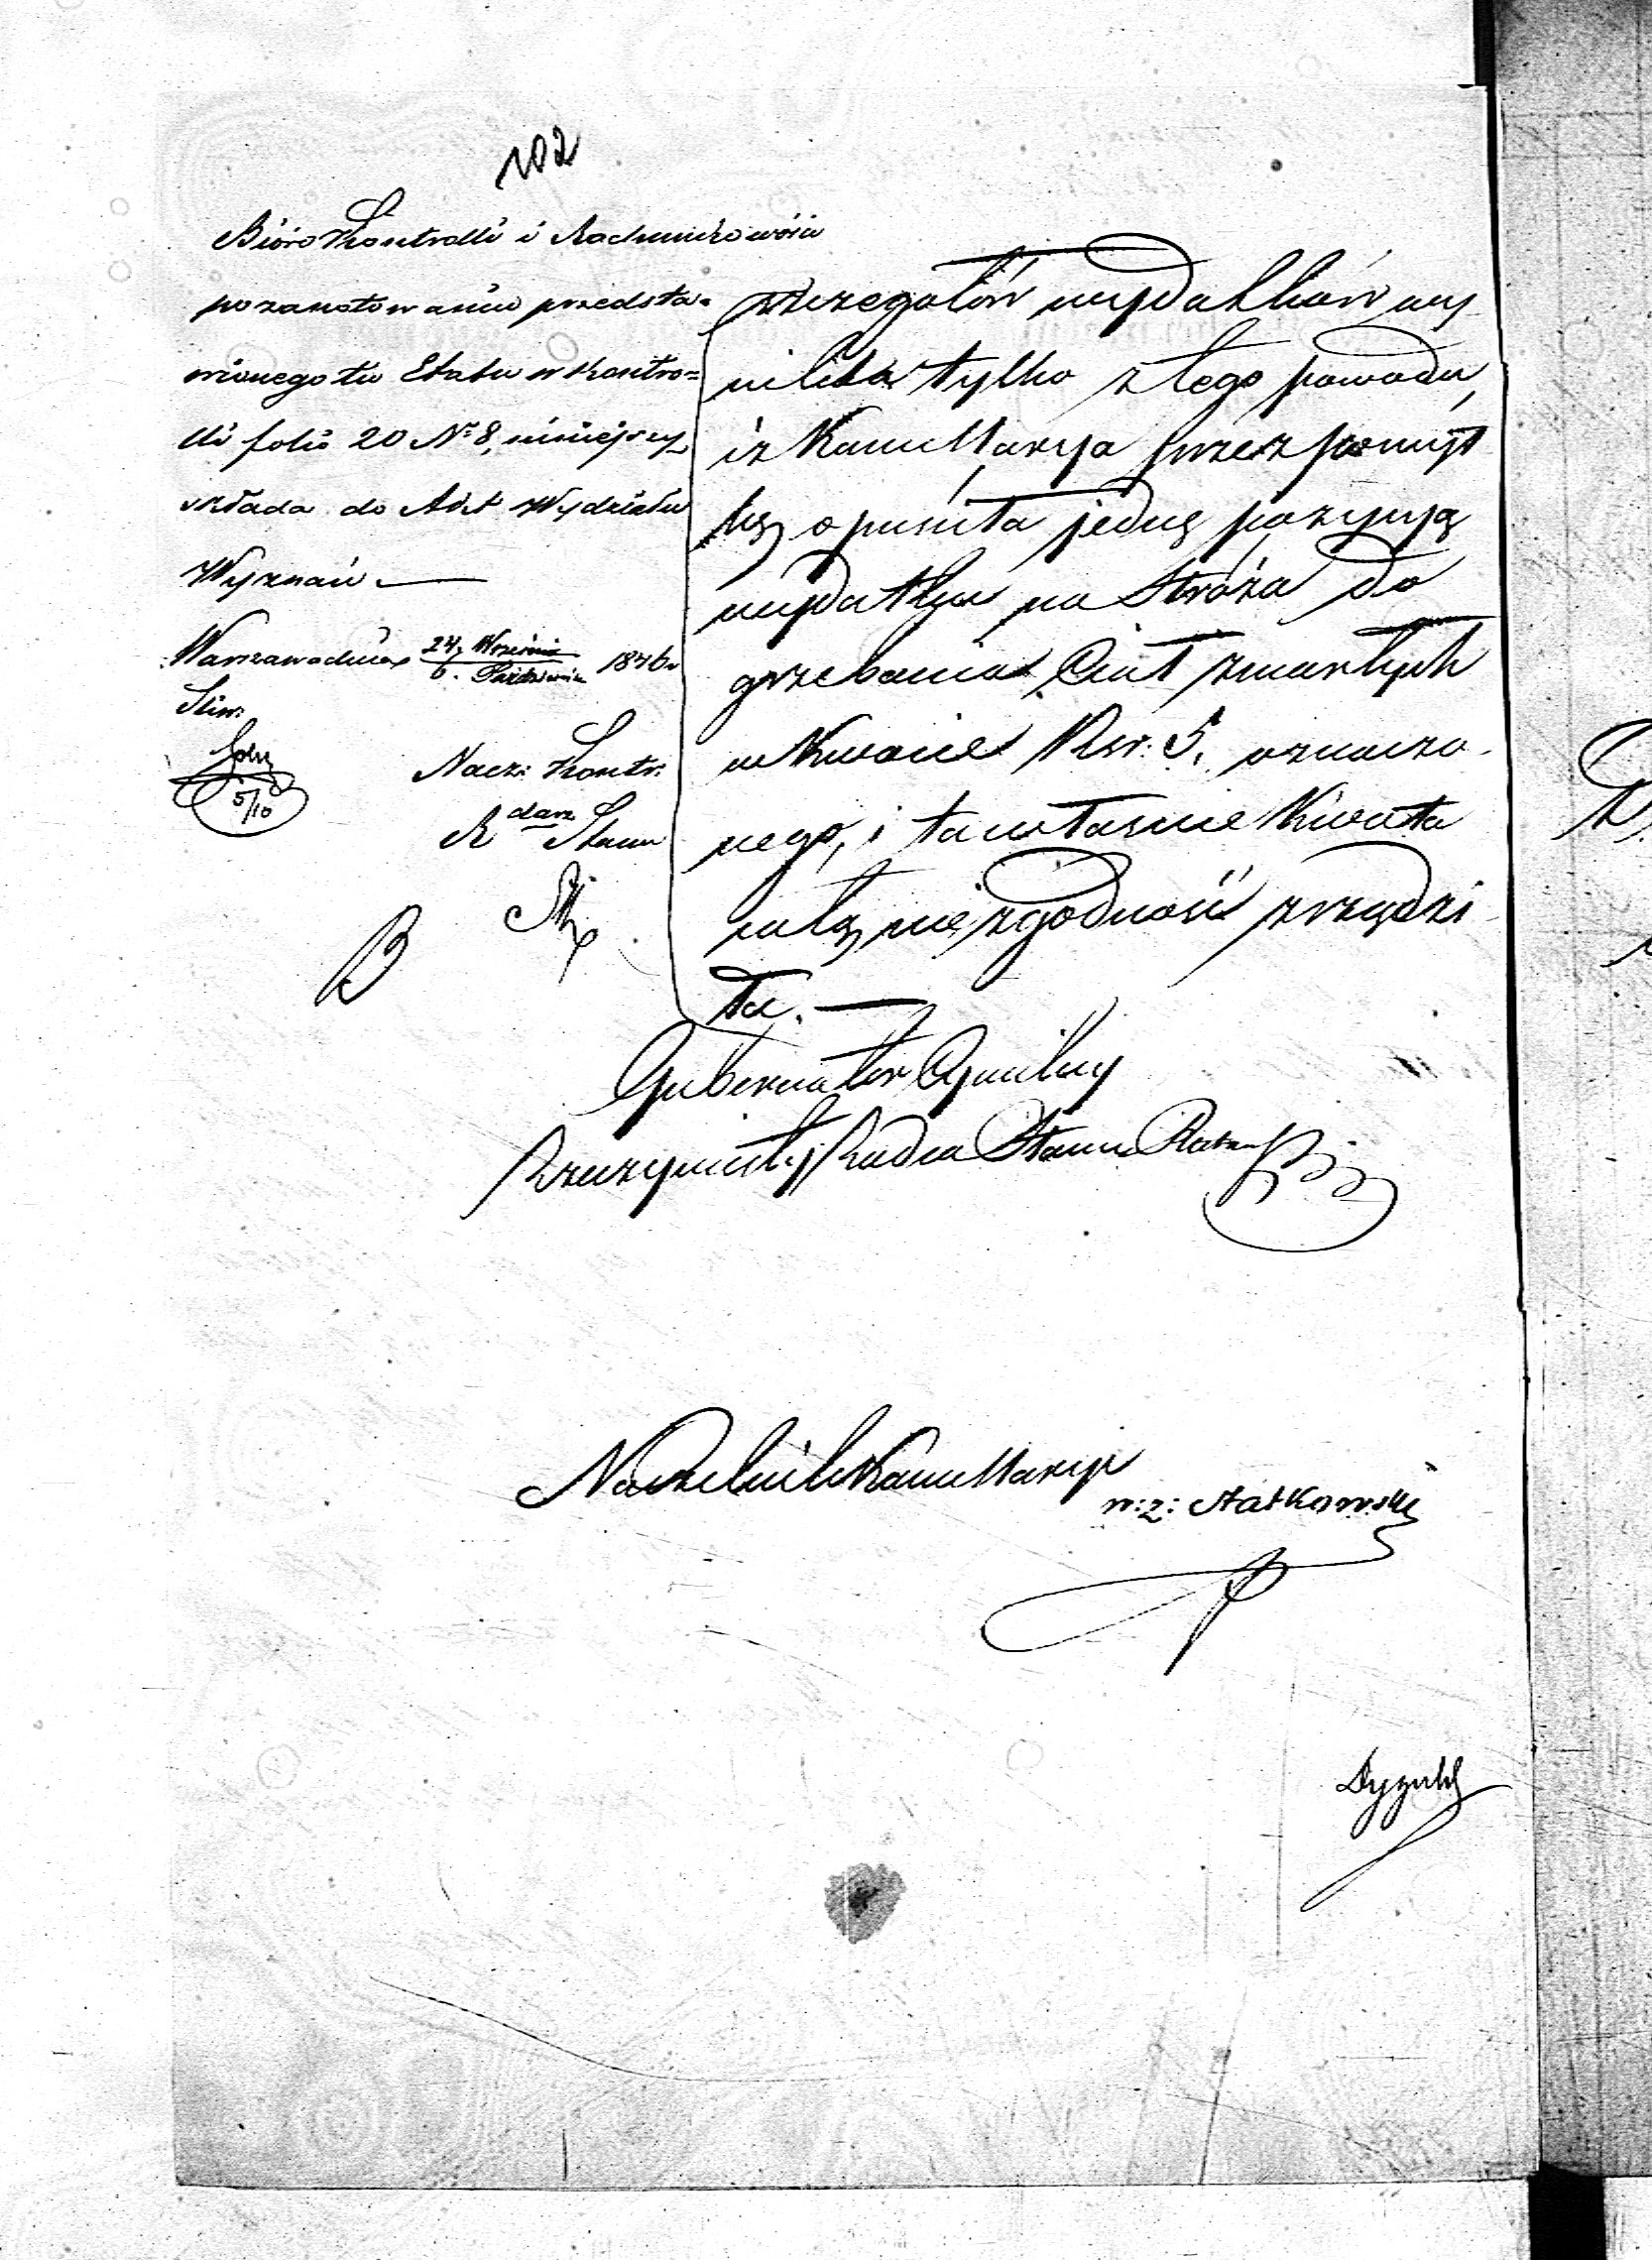 102
Bióro Kontrolli i Rachunkowości
po zanotowaniu przedsta-
wionego tu Etatu w Kontro-
lli folio 20 Nº 8, niniejszy
składa do Akt Wydziału
Wyznań —
Warszawa dnia 24 Września / 6. Października 1846 r
Nacz: Kontr:
Radca Stanu
szczegółów wydatków wy-
nikła tylko z tego powodu,
iż Kancellarya przez pomył
kę opuściła jedną pozycyją
wydatku na Stróża do
grzebania Ciał zmarłych
w Kwocie Rsr: 5. oznaczo-
nego, i ta właśnie Kwota
całą niezgodność zrządzi
ła. —
Gubernator Cywilny
Rzeczywisty Radca Stanu
Naczelnik Kancellaryi
w: z:
5/10